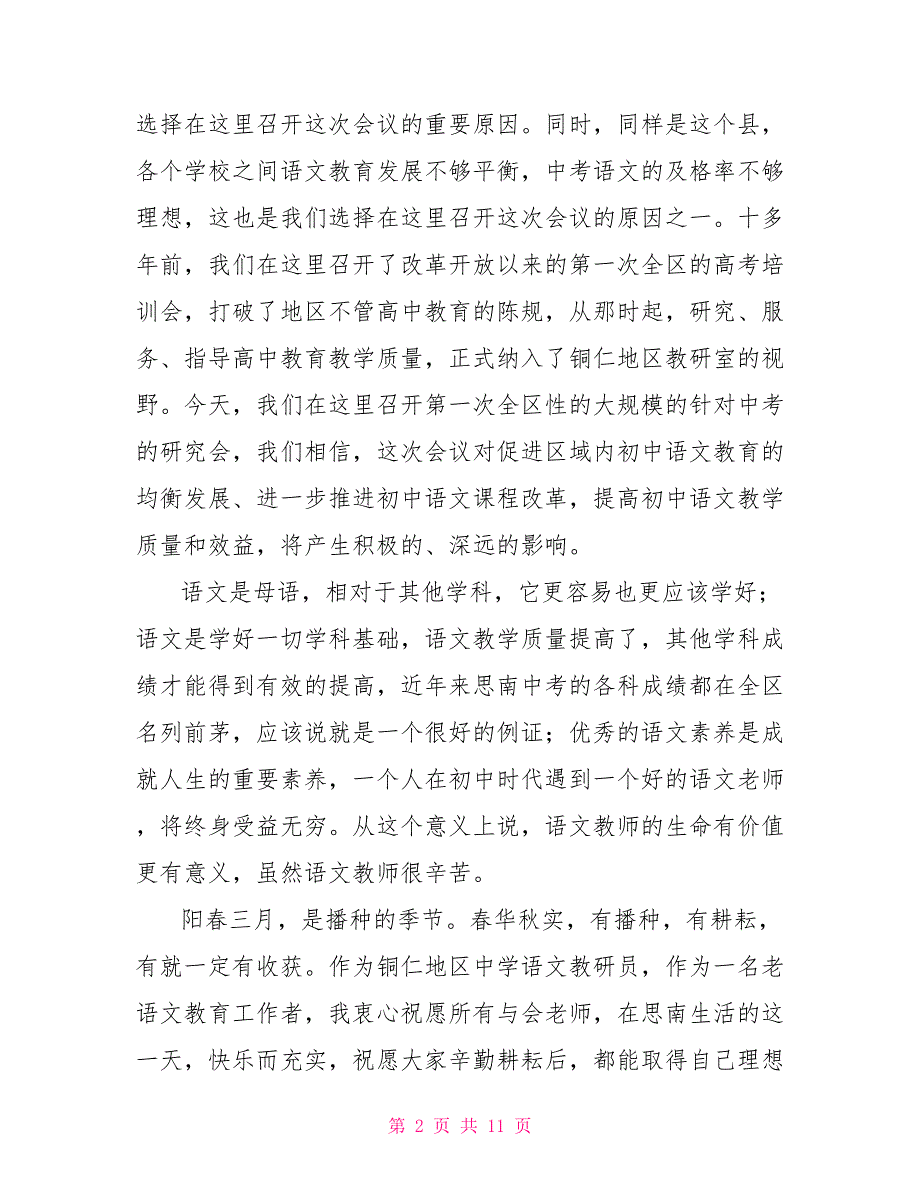 选择在这里召开这次会议的重要原因。同时，同样是这个县，
各个学校之间语文教育发展不够平衡，中考语文的及格率不够
理想，这也是我们选择在这里召开这次会议的原因之一。十多
年前，我们在这里召开了改革开放以来的第一次全区的高考培
训会，打破了地区不管高中教育的陈规，从那时起，研究、服
务、指导高中教育教学质量，正式纳入了铜仁地区教研室的视
野。今天，我们在这里召开第一次全区性的大规模的针对中考
的研究会，我们相信，这次会议对促进区域内初中语文教育的
均衡发展、进一步推进初中语文课程改革，提高初中语文教学
质量和效益，将产生积极的、深远的影响。
语文是母语，相对于其他学科，它更容易也更应该学好；
语文是学好一切学科基础，语文教学质量提高了，其他学科成
绩才能得到有效的提高，近年来思南中考的各科成绩都在全区
名列前茅，应该说就是一个很好的例证；优秀的语文素养是成
就人生的重要素养，一个人在初中时代遇到一个好的语文老师
，将终身受益无穷。从这个意义上说，语文教师的生命有价值
更有意义，虽然语文教师很辛苦。
阳春三月，是播种的季节。春华秋实，有播种，有耕耘，
有就一定有收获。作为铜仁地区中学语文教研员，作为一名老
语文教育工作者，我衷心祝愿所有与会老师，在思南生活的这
一天，快乐而充实，祝愿大家辛勤耕耘后，都能取得自己理想
第 2 页 共 11 页